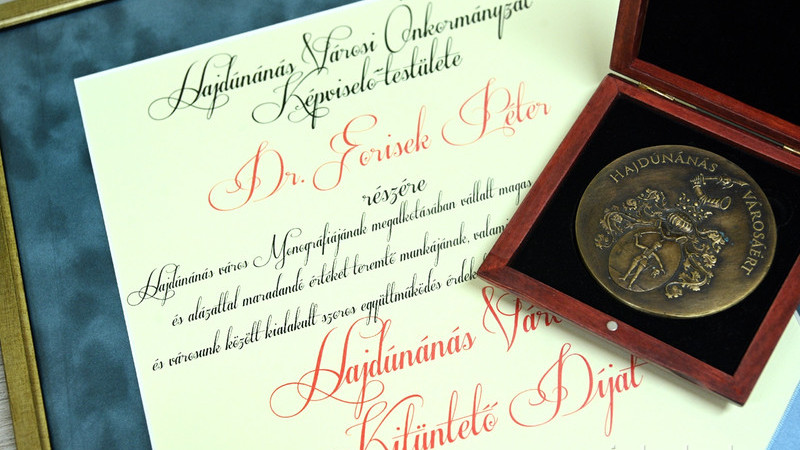 Hajdúnánás Városi Önkormányzat
Képviselő-testülete
Dr. Forisek Péter
részére
Hajdúnánás város Monográfiájának megalkotásában vállalt magas
és alázattal maradandó értéket teremtő munkájának, valami
és városunk között kialakult szoros együttműködés érdeké
Hajdúnánás Váro
Kitüntető Díját
HAJDUNÁNÁS VÁROSÁÉRT